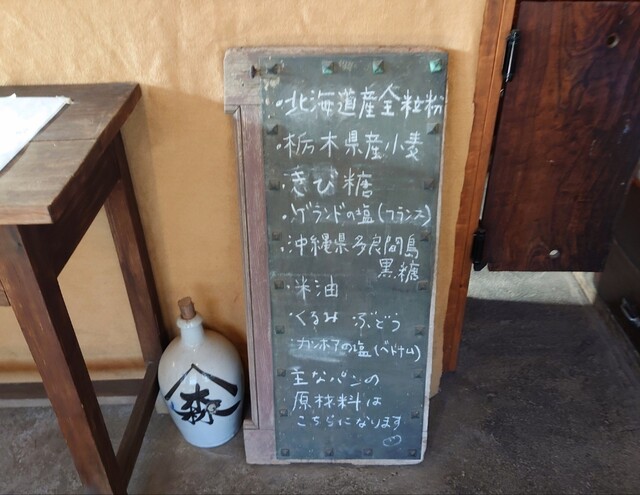 ・北海道産全粒粉
・栃木県産小麦
・きび糖
・ゲランドの塩(フランス)
・沖縄県多良間島
黒糖
・米油
・くるみ ぶどう
・カンホアの塩(ベトナム)
主なパンの
原材料は
こちらになります
森